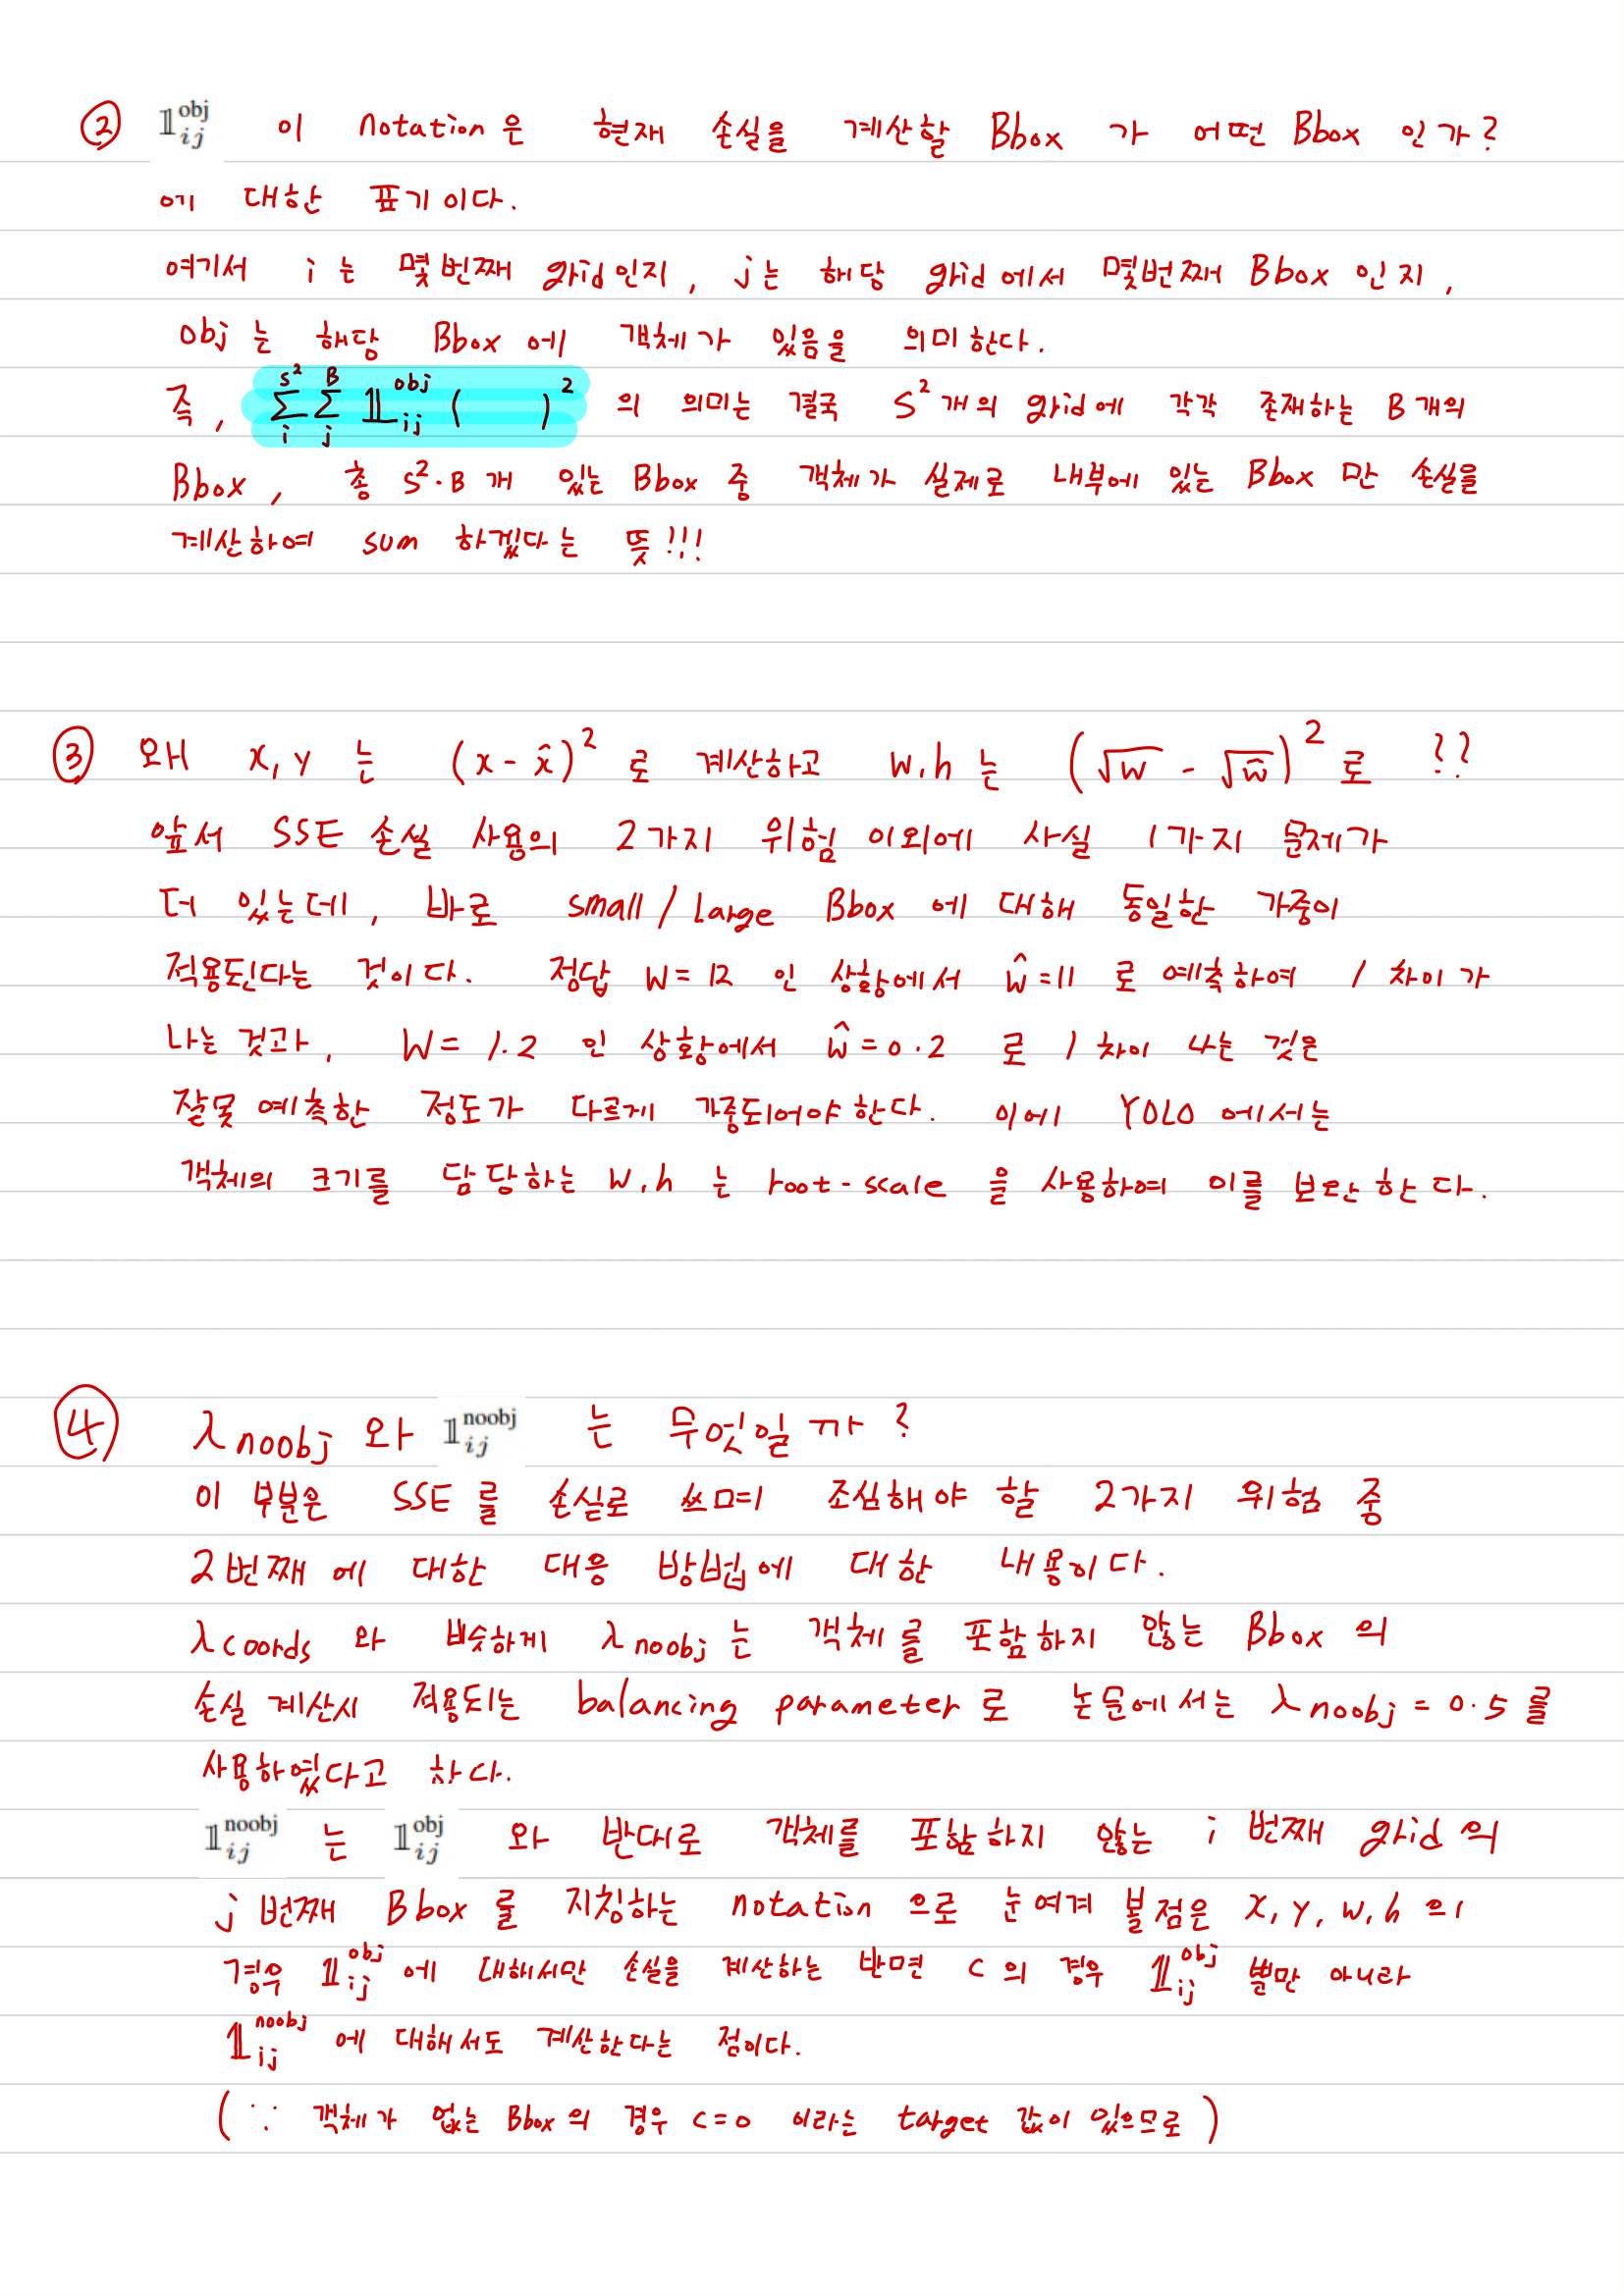 ② 𝟙ᵢⱼᵒᵇʲ 이 notation은 현재 손실을 계산할 Bbox 가 어떤 Bbox 인가?
에 대한 표기이다.
여기서 i 는 몇번째 grid인지, j는 해당 grid에서 몇번째 Bbox 인지,
obj 는 해당 Bbox 에 객체가 있음을 의미한다.
즉, Σᵢ^{S²} Σⱼ^{B} 𝟙ᵢⱼᵒᵇʲ ( )² 의 의미는 결국 S² 개의 grid에 각각 존재하는 B 개의
Bbox, 총 S²·B 개 있는 Bbox 중 객체가 실제로 내부에 있는 Bbox 만 손실을
계산하여 sum 하겠다는 뜻!!!
③ 왜 x, y 는 (x - x̂)² 로 계산하고 w.h 는 (√w - √ŵ)² 로 ??
앞서 SSE 손실 사용의 2가지 위험 이외에 사실 1가지 문제가
더 있는데, 바로 small/Large Bbox 에 대해 동일한 가중이
적용된다는 것이다. 정답 w=12 인 상황에서 ŵ=11 로 예측하여 1 차이가
나는 것과, w= 1.2 인 상황에서 ŵ=0.2 로 1 차이 나는 것은
잘못 예측한 정도가 다르게 가중되어야 한다. 이에 YOLO 에서는
객체의 크기를 담당하는 w.h 는 root-scale 을 사용하여 이를 보완한다.
④ λnoobj 와 𝟙ᵢⱼⁿᵒᵒᵇʲ 는 무엇일까?
이 부분은 SSE 를 손실로 쓰면 조심해야 할 2가지 위험 중
2번째에 대한 대응 방법에 대한 내용이다.
λcoords 와 비슷하게 λnoobj는 객체를 포함하지 않는 Bbox 의
손실 계산시 적용되는 balancing parameter로 논문에서는 λnoobj = 0.5 를
사용하였다고 한다.
𝟙ᵢⱼⁿᵒᵒᵇʲ 는 𝟙ᵢⱼᵒᵇʲ 와 반대로 객체를 포함하지 않는 i 번째 grid의
j 번째 Bbox 를 지칭하는 notation 으로 눈여겨 볼점은 x, y, w, h 의
경우 𝟙ᵢⱼᵒᵇʲ에 대해서만 손실을 계산하는 반면 C 의 경우 𝟙ᵢⱼᵒᵇʲ 뿐만 아니라
𝟙ᵢⱼⁿᵒᵒᵇʲ 에 대해서도 계산한다는 점이다.
(∵ 객체가 없는 Bbox의 경우 c=0 이라는 target 값이 있으므로)